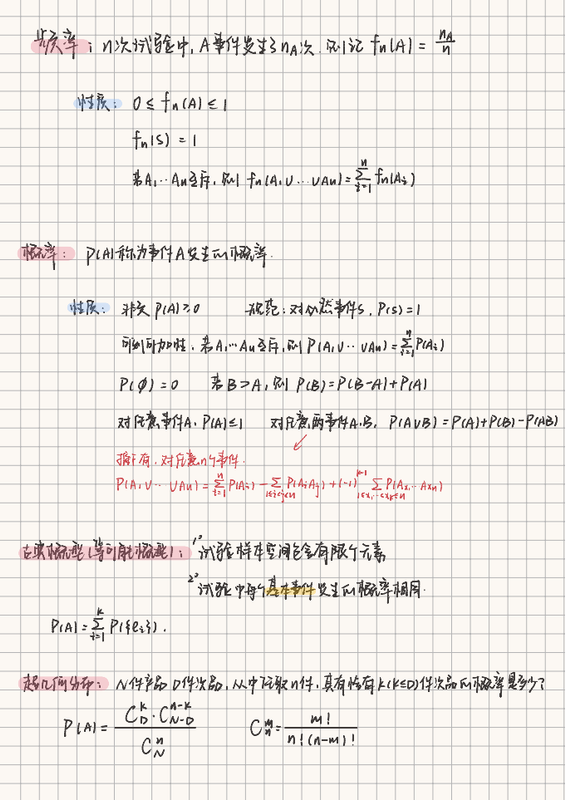 频率：n次试验中，A事件发生了nA次，则记 fn(A) = nA/n
性质：0 ≤ fn(A) ≤ 1
fn(S) = 1
若A1…An互斥，则 fn(A1∪…∪An)=∑(i=1→n) fn(Ai)
概率：P(A)称为事件A发生的概率.
性质：非负 P(A)≥0 规范：对必然事件S，P(S)=1
可列可加性，若A1…An互斥，则P(A1∪…∪An)=∑(i=1→n) P(Ai)
P(∅)=0 若B>A，则 P(B)=P(B-A)+P(A)
对任意事件A，P(A)≤1 对任意两事件A.B，P(A∪B)=P(A)+P(B)-P(AB)
推广有，对任意n个事件.
P(A1∪…∪An)=∑(i=1→n) P(Ai)-∑(1≤i<j≤n) P(AiAj)+(-1)^(k-1) ∑ P(Ax1…Axn)
古典概型(等可能概型)：1°试验样本空间包含有限个元素
2°试验中每个基本事件发生的概率相同.
P(A)=∑(i=1→k) P({ei}).
超几何分布：N件产品D件次品，从中任取n件，其有恰有k(k≤D)件次品的概率是多少？
P(A)= C_D^k·C_{N-D}^{n-k} / C_N^n C_n^m = m! / n!(n-m)!